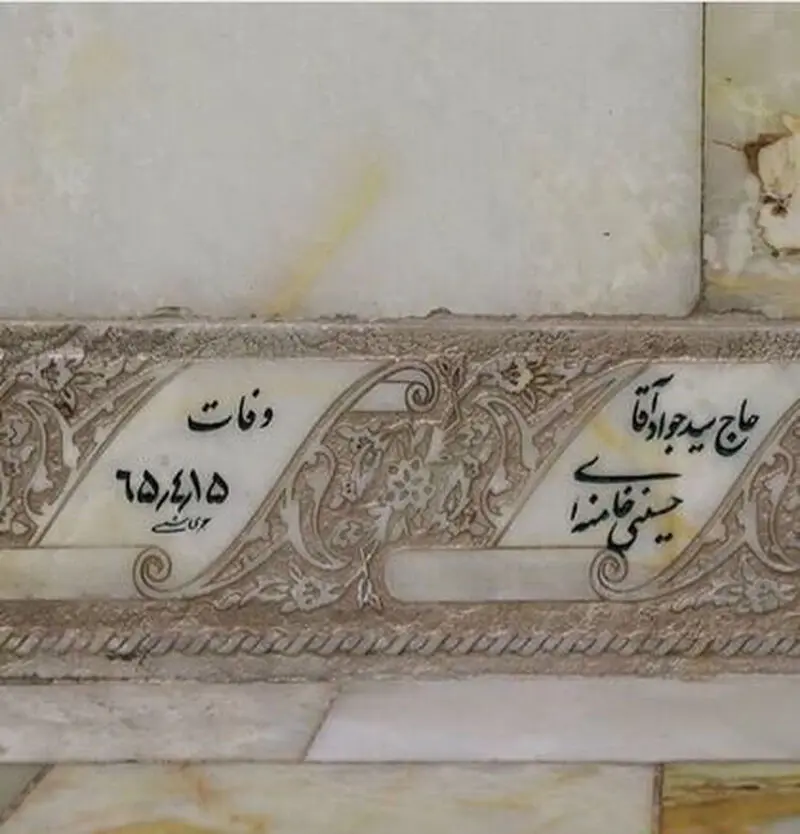 حاج سید جواد آقا
حسینی خامنه ای
وفات
۶۵٫۴٫۱۵
هجری شمسی